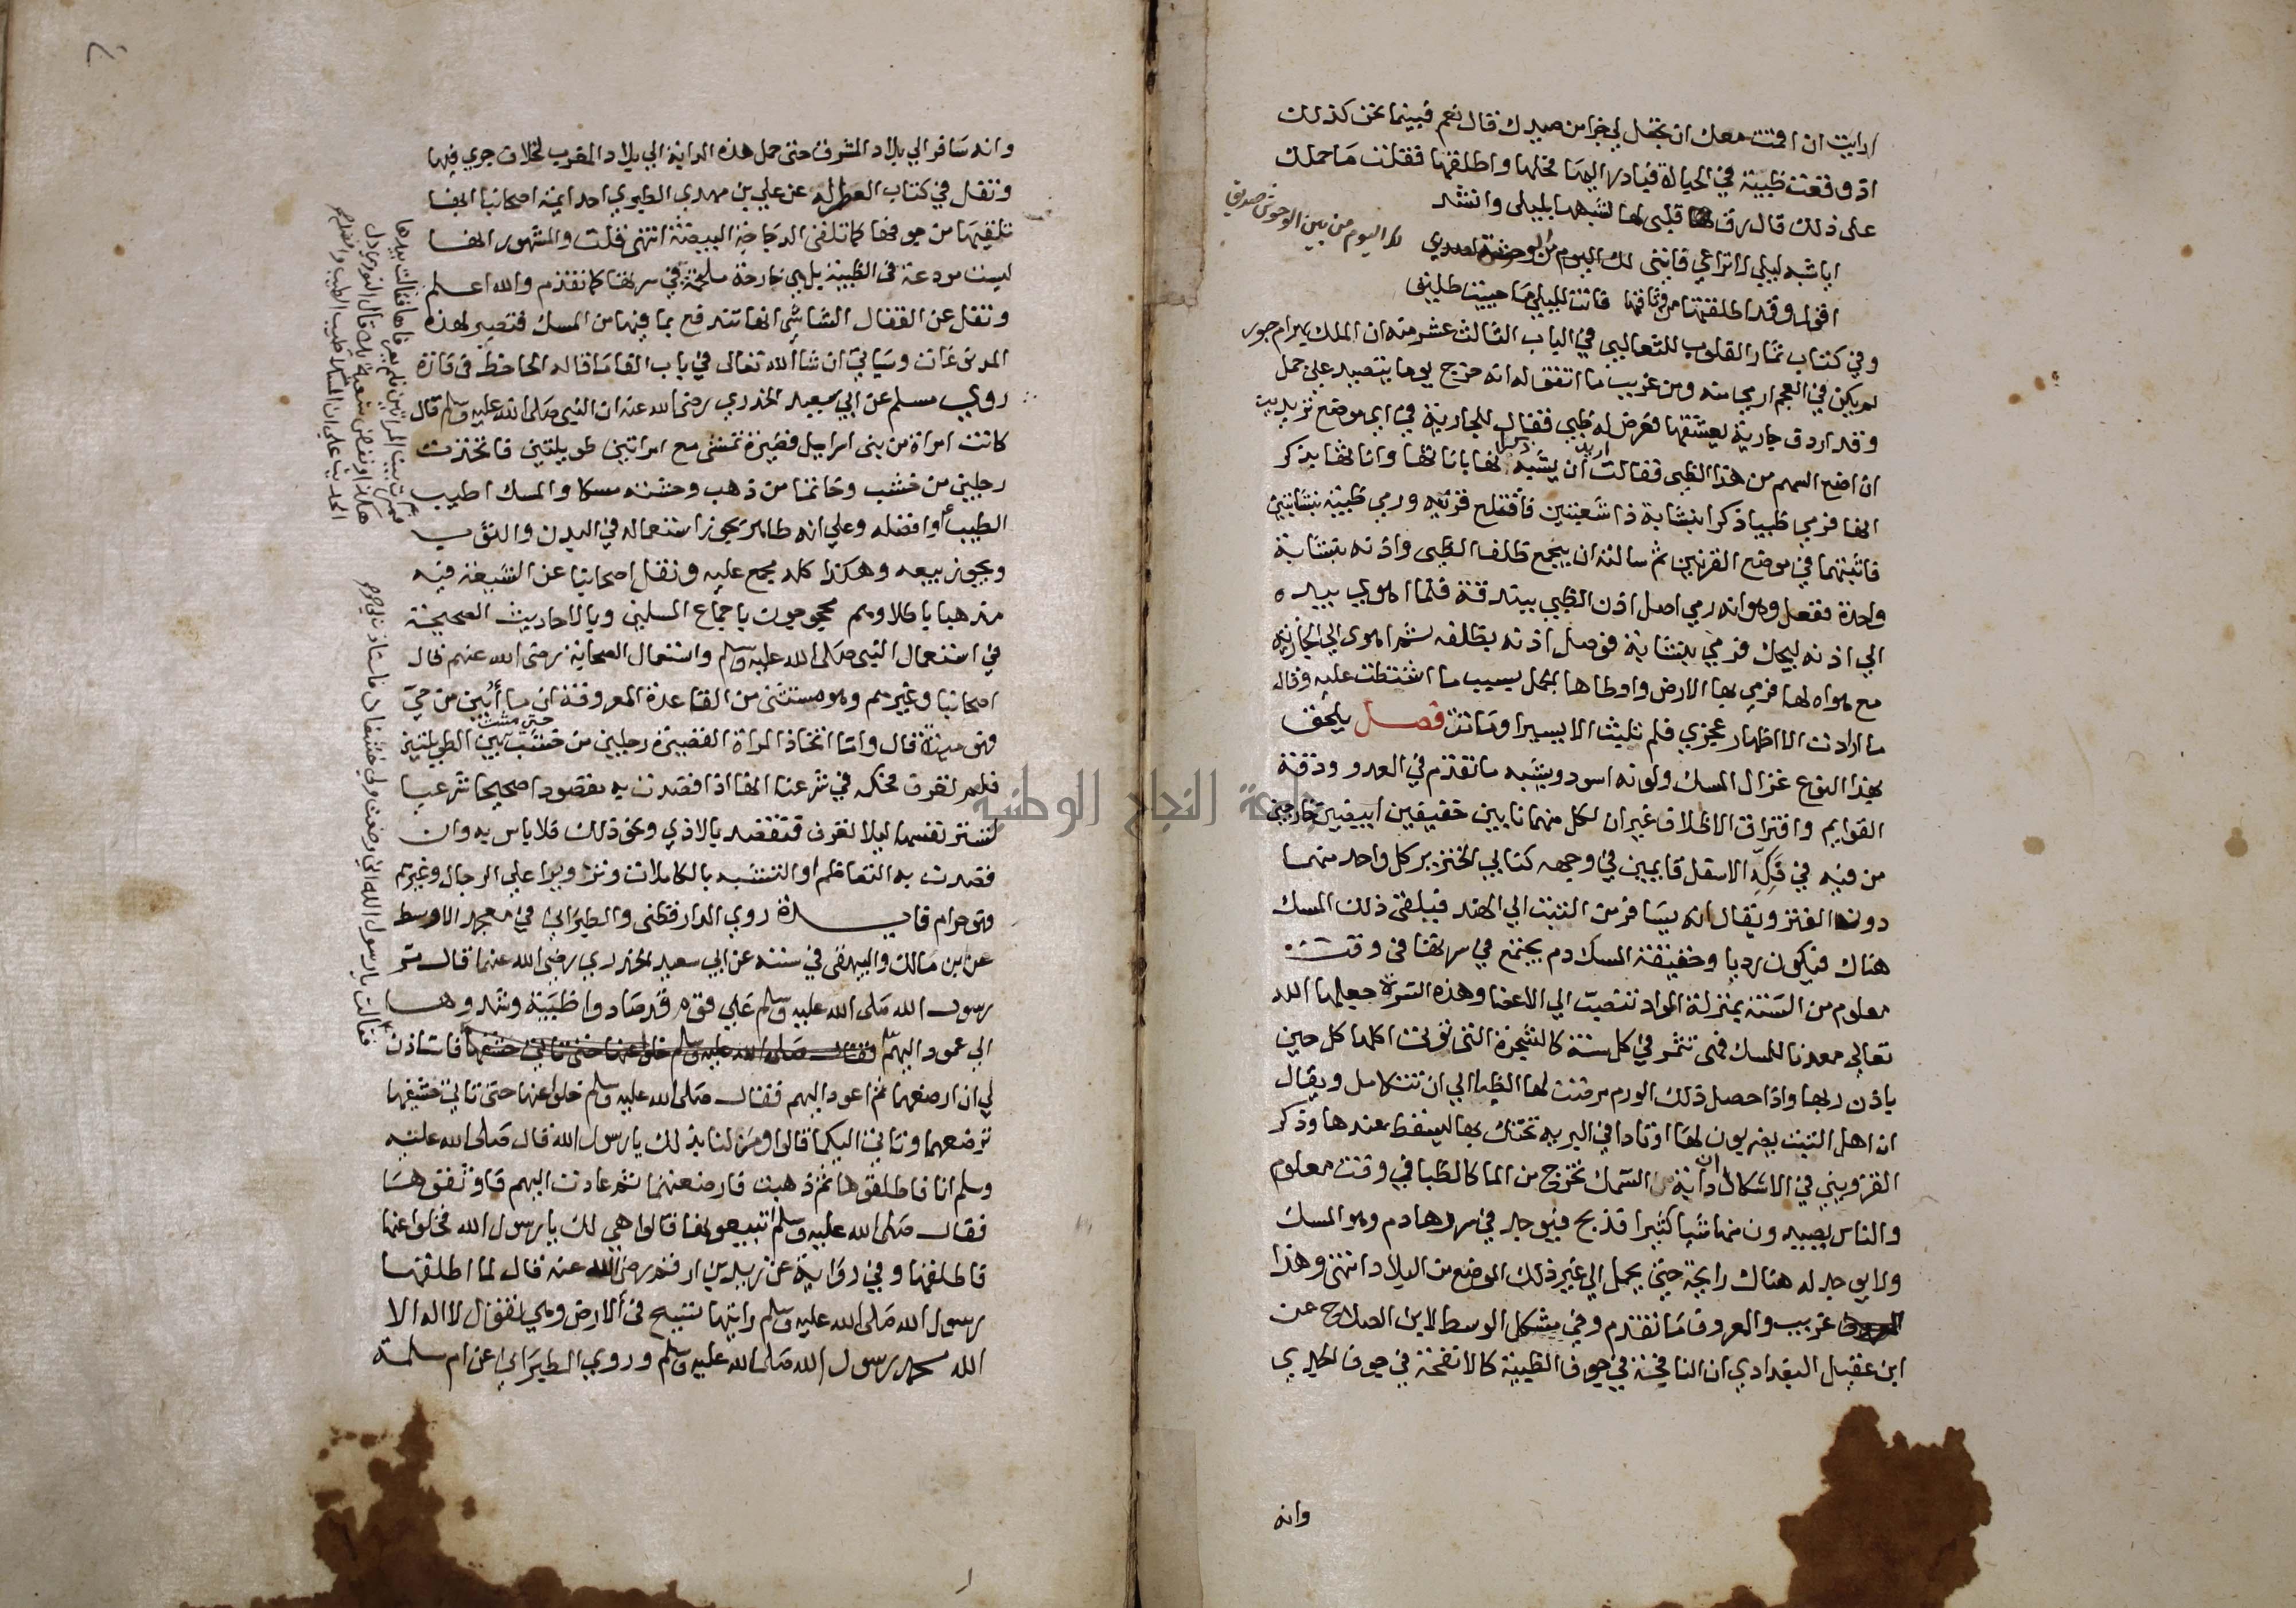 ارايت ان اقمت معك ان تجعل لي جزا من صيدك قال نعم فبينما نحن كذلك
اذ وقعت ظبية في الحبالة فبادر اليها فخلها واطلقها فقلت ما حملك
على ذلك قال رق لها قلبي لشبهها بليلى وانشد
ايا شبه ليلى لا تراعي فانني لك اليوم من
لك اليوم من بين الوحوش صديق
اقول وقد اطلقتها من وثاقها فانت لليلى ما حييت طليق
وفي كتاب ثمار القلوب للثعالبي في الباب الثالث عشر منه ان الملك بهرام جور
لم يكن في العجم ارمى منه ومن غريب ما اتفق له انه خرج يوما يتصيد على جمل
وقد اردف جارية يعشقها فعرض له ظبي فقال للجارية في اي موضع تريدين
ان اضع السهم من هذا الظبي فقالت اريد ان يشبه ذكرانها باناثها واناثها بذكر
انها فرمى ظبيا ذكرا بنشابة ذا شعبتين فاقتلع قرنيه ورمى ظبية بنشابتين
فاثبتهما في موضع القرنين ثم سالته ان يجمع ظلف الظبي واذنه بنشابة
واحدة ففعل وهو انه رمى اصل اذن الظبي ببندقة فلما اهوى بيده
الى اذنه ليحك فرمي بنشابة فوصل اذنه بظلفه ثم اهوى الى الجارية
مع هواه لها فرمى بها الارض واوطاها الجمل بسبب ما اشتطت عليه وقال
ما ارادت الا اظهار عجزي فلم تلبث الا يسيرا وماتت فصل يلحق
بهذا النوع غزال المسك ولونه اسود ويشبه ما تقدم في العدو ودقة
القوايم وافتراق الاظلاف غير ان لكل منهما نابين خفيفين ابيضين خارجين
من فيه في فكه الاسفل قايمين في وجهه كنابي الخنزير كل واحد منهما
دون الفتر ويقال انه يسافر من التبت الى الهند فيلقى ذلك المسك
هناك فيكون رديا وحقيقة المسك دم يجتمع في سرتها في وقت
معلوم من السنة بمنزلة المواد تنصب الى الاعضا وهذه السرة جعلها الله
تعالى معدنا للمسك فهي تثمر في كل سنة كالشجرة التي توتى اكلها كل حين
باذن ربها واذا حصل ذلك الورم مرضت لها الظبا الى ان تتكامل ويقال
ان اهل التبت يضربون لها اوتادا في البرية تحتك بها ليسقط عندها وذكر
القزويني في الاشكال ان دابة من السمك تخرج من الما كالظبا في وقت معلوم
والناس يصيدون منها شيا كثيرا فتذبح فيوجد في سررها دم وهو المسك
ولا يوجد له هناك رايحة حتى يحمل الى غير ذلك الموضع من البلاد انتهى وهذا
غريب والمعروف ما تقدم وفي مشكل الوسط لابن الصلاح عن
ابن عقيل البغدادي ان النافجة في جوف الظبية كالانفحة في جوف الجدي
وانه
وانه سافر الى بلاد المشرق حتى حمل هذه الدابة الى بلاد المغرب لخلاف جرى فيها
ونقل في كتاب العطر له عن علي بن مهدي الطبري احد ايمة اصحابنا انها
تلقيها من جوفها كما تلقي الدجاجة البيضة انتهى قلت والمشهور انها
ليست مودعة في الظبية بل هي خارجة ملتحمة في سرتها كما تقدم والله اعلم
ونقل عن القفال الشاشي انها تندبغ بما فيها من المسك فتصير لهذه
المدبوغات وسياتي ان شا الله تعالى في باب الفا ما قاله الجاحظ في فارة
روى مسلم عن ابي سعيد الخدري رضي الله عنه ان النبي صلى الله عليه وسلم قال
كانت امراة من بني اسرايل قصيرة تمشي مع امراتين طويلتين فاتخذت
رجلين من خشب وخاتما من ذهب وحشته مسكا والمسك اطيب
الطيب وافضله وعلى انه طاهر يجوز استعماله في البدن والثوب
ويجوز بيعه وهكذا كله مجمع عليه ونقل اصحابنا عن الشيعة فيه
مذهبا باطلا وهم محجوجون باجماع المسلمين وبالاحاديث الصحيحة
في استعمال النبي صلى الله عليه وسلم واستعمال الصحابة رضي الله عنهم قال
اصحابنا وغيرهم وهو مستثنى من القاعدة المعروفة ان ما أبين من حي
فهو ميتة قال واما اتخاذ المراة القصيرة رجلين من خشب حتى مشت بين الطويلتين
فلم تعرف فحكمه في شرعنا انها اذا قصدت به مقصودا صحيحا شرعيا
لتستر نفسها ليلا تعرف فتقصد بالاذى ونحو ذلك فلا باس به وان
قصدت به التعاظم او التشبه بالكاملات وتزويرا على الرجال وغيرهم
فهو حرام فايدة روى الدارقطني والطبراني في معجمه الاوسط
عن ابن مالك والبيهقي في سننه عن ابي سعيد الخدري رضي الله عنهما قال مر
رسول الله صلى الله عليه وسلم على قوم قد صادوا ظبية وشدوها
الى عمود اليهم فاستاذن
لي ان ارضعهما ثم اعود اليهم فقال صلى الله عليه وسلم خلوا عنها حتى تاتي خشفيها
ترضعهما وتاتي اليكم قالوا ومن لنا بذلك يا رسول الله قال صلى الله عليه
وسلم انا فاطلقوها ثم ذهبت فارضعتهما ثم عادت اليهم فاوثقوها
فقال صلى الله عليه وسلم اتبيعونها قالوا هي لك يا رسول الله فخلوا عنها
فاطلقها وفي رواية عن زيد بن ارقم رضي الله عنه قال لما اطلقها
رسول الله صلى الله عليه وسلم رايتها تسبح في الارض وهي تقول لا اله الا
الله محمد رسول الله صلى الله عليه وسلم وروى الطبراني عن ام سلمة
فمرت بين المراتين فلم يعرفاها فقالت بيدها
هكذا ونفض شعبة يده قال النووي دل
الحديث على ان المسك اطيب الطيب وافضله
فقالت يا رسول الله اني وضعت ولي خشفان فاستاذن لي